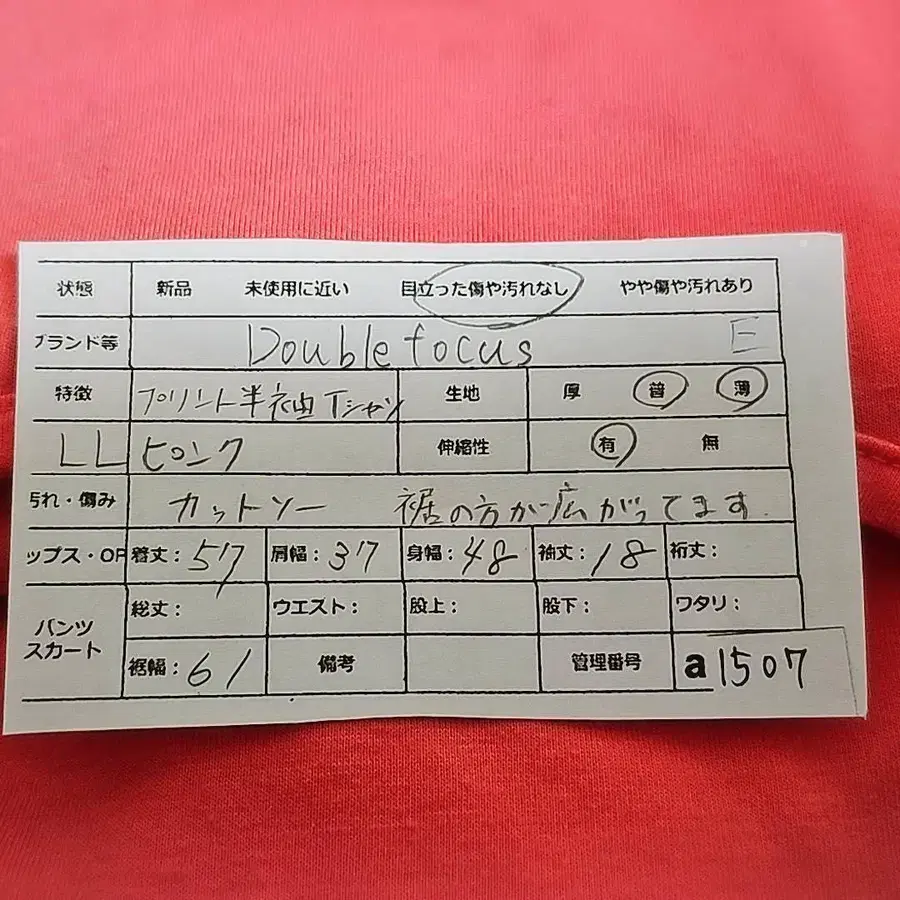 状態 新品 未使用に近い 目立った傷や汚れなし やや傷や汚れあり
ブランド等 Doublefocus E
特徴 プリント半袖Tシャツ 生地 厚 普 薄
LL ピンク 伸縮性 有 無
汚れ・傷み カットソー 裾の方が広がってます
ップス・OP 着丈:57 肩幅:37 身幅:48 袖丈:18 裄丈:
パンツ スカート 総丈: ウエスト: 股上: 股下: ワタリ:
裾幅:61 備考 管理番号 a1507